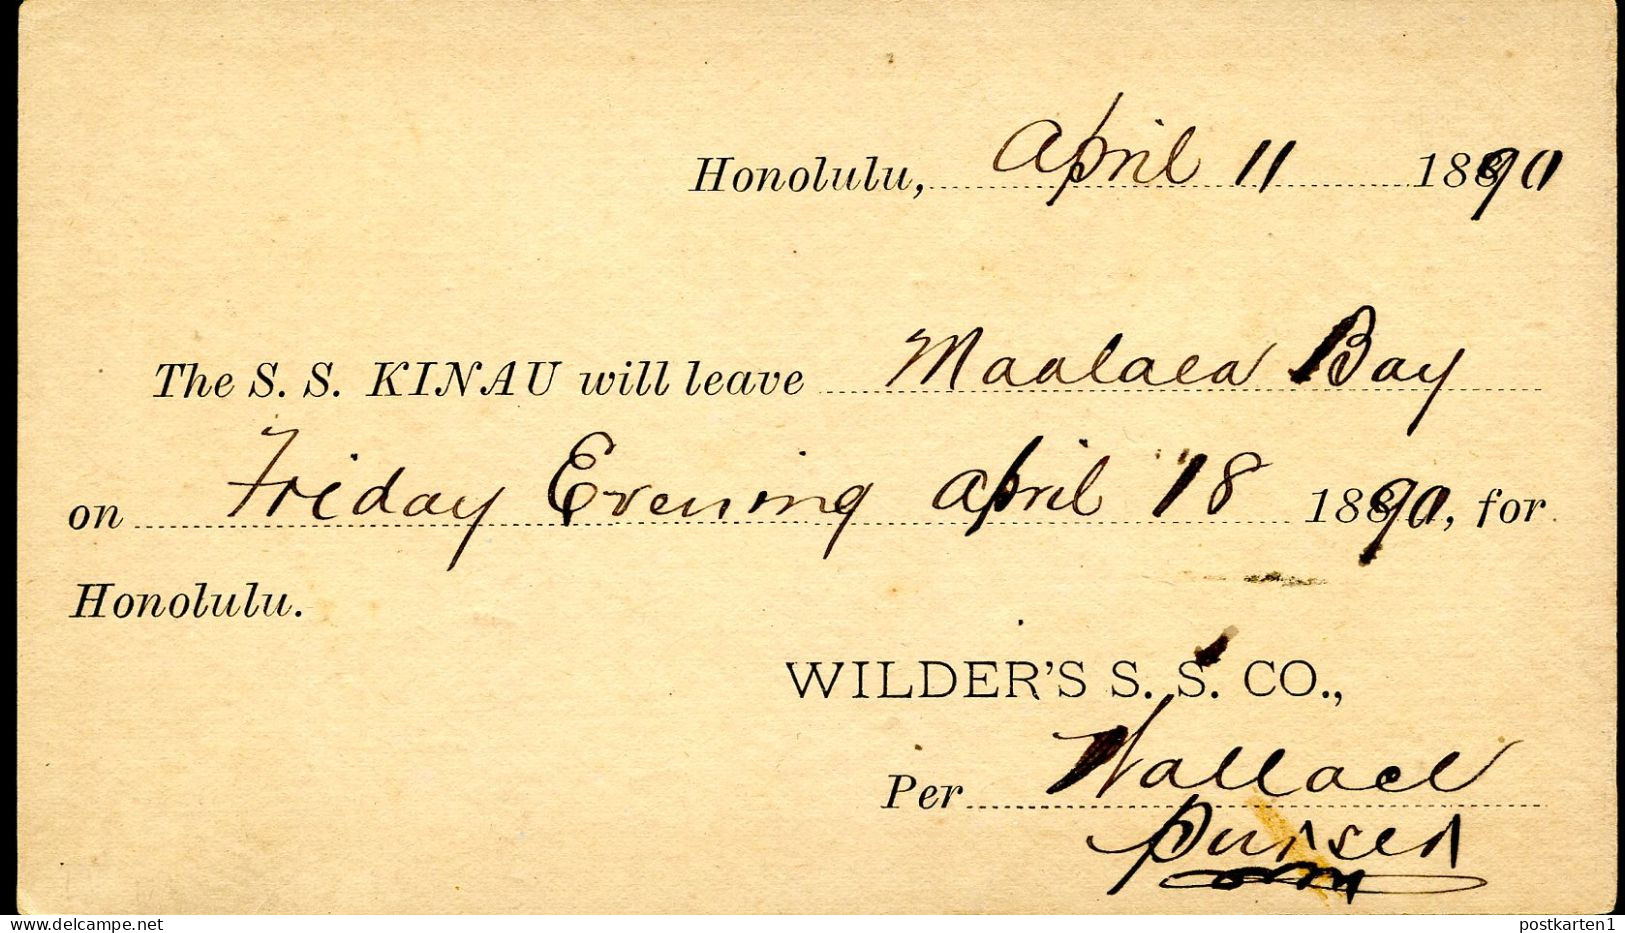 Honolulu, April 11 1890
The S. S. KINAU will leave Maalaea Bay
on Friday Evening April 18 1890, for
Honolulu.
WILDER'S S. S. CO.,
Per Wallace
Purser
postkarten1